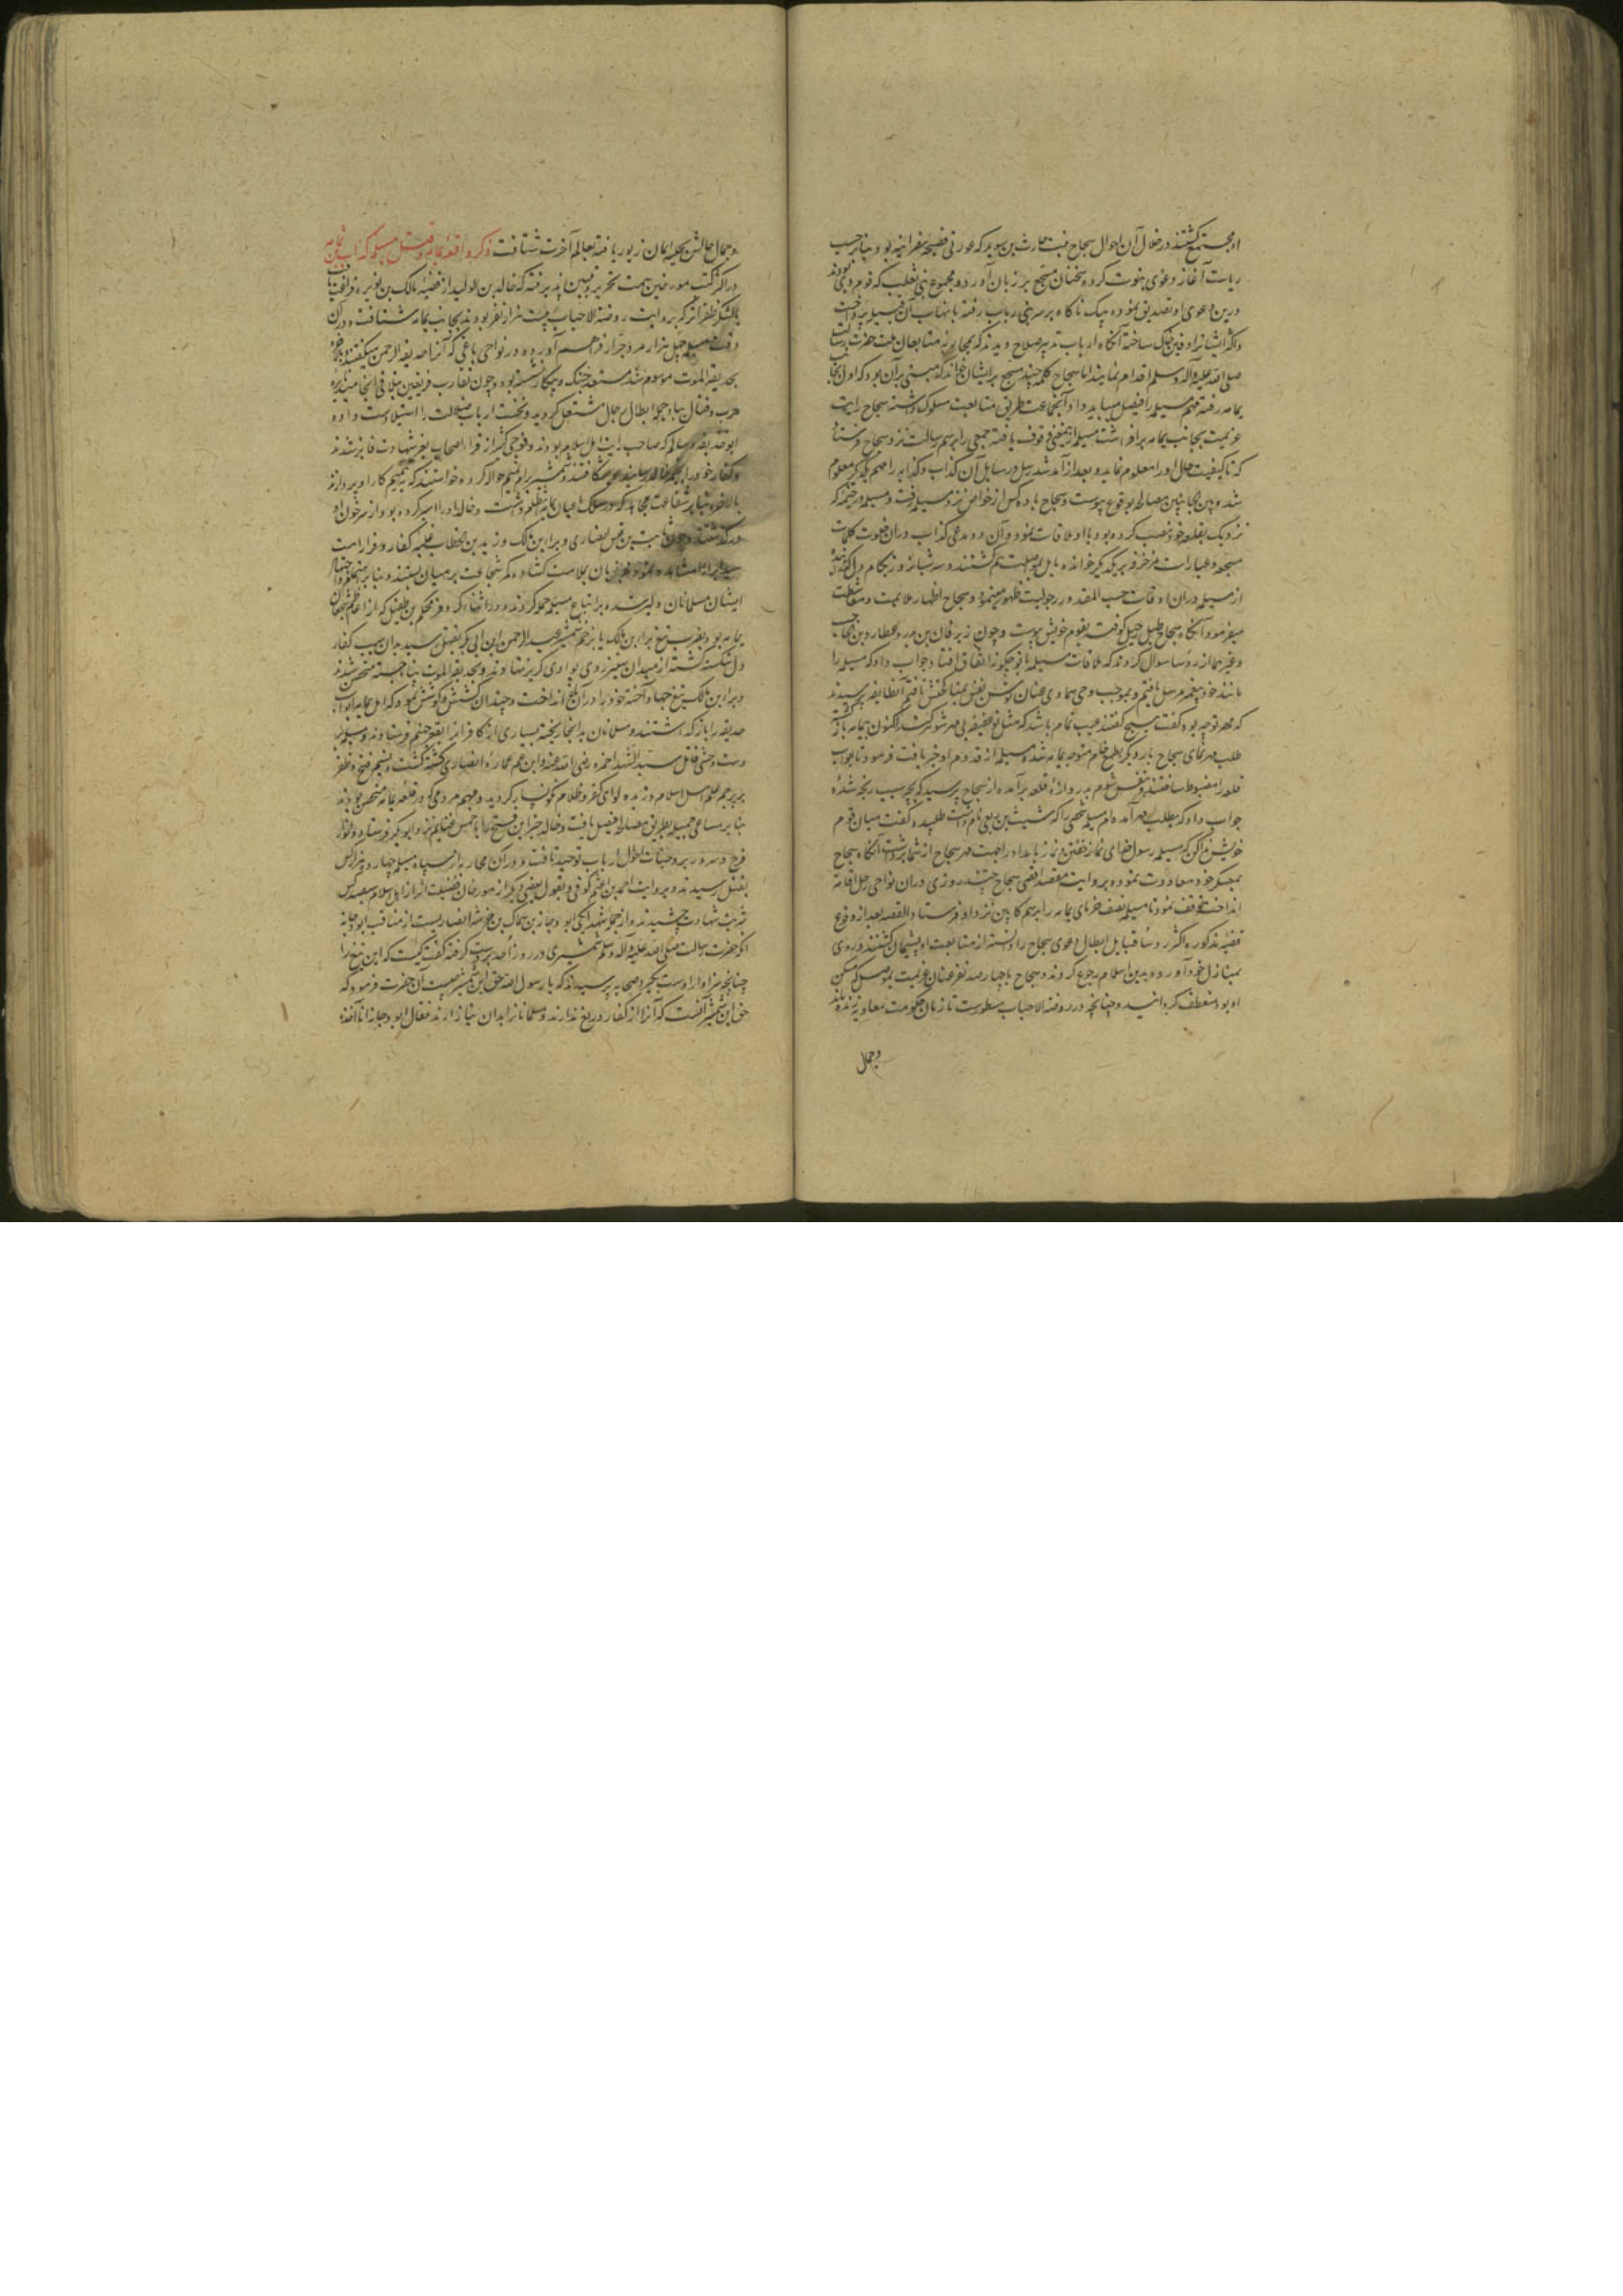 او مجتمع گشتند در خلال آن احوال سجاح بنت حارث بن سوید که عورتی فصیحه نصرانیه بود بنا بر حب
ریاست آغاز دعوی نبوت کرده سخنان مسجع بر زبان آورد و مجموع بنی تغلب که قوم وی بودند
درین دعوی او تصدیق نموده بیک ناکاه بر سر بنی رباب رفته بانتهاب آن قبیله پرداخت
و اکثر ایشانرا دفین خاک ساخته آنکاه ارباب تدبیر صلاح دیدند که بمحاربه متابعان ملت حضرت رسالت
صلی الله علیه و آله و سلم اقدام نمایند اما سجاح کلمه چند مسجع بر ایشان خواند که مبنی بر آن بود که اول بجانب
یمامه رفته مهم مسیلمه را فیصل میباید داد آنجماعت طریق متابعت مسلوک داشته سجاح رایت
عزیمت بجانب یمامه برافراشت مسیلمه ازینمعنی وقوف یافته جمعی را برسم رسالت نزد سجاح فرستاد
که تا کیفیت حال او را معلوم نماید و بعد از آمد شد رسل و رسایل آن کذاب و کذابه را مهم یکدیگر معلوم
شد و بین الجانبین مصالحه بوقوع پیوست و سجاح با ده کس از خواص نزد مسیلمه رفت و مسیلمه در خیمه که
نزدیک بقلعه خود نصب کرده بود با او ملاقات نمود و آن دو مدعی کذاب در آن خلوت کلمات
مسجعه و عبارات مزخرفه بر یکدیگر خوانده مایل بمواصلت هم گشتند و سه شبانروز بکام دل گذرانیدند
از مسیلمه در آن اوقات حسب المقدور رجولیت ظهور مینمود و سجاح اظهار ملایمت و مطاوعت
میفرمود آنکاه سجاح طبل رحیل کوفته بقوم خویش پیوست و چون زبرقان بن بدر و عطارد بن حاجب
و غیرهما از رؤسا سوال کردند که ملاقات مسیلمه با تو چکونه اتفاق افتاد جواب داد که مسیلمه را
مانند خود پیغمبر مرسل یافتم و بموجب وحی سماوی عنان توسن نفس بمناکحتش تافتم آنطایفه پرسیدند
که مهر تو چه بود گفت هیچ گفتند عیب تمام باشد که مثل تو عفیفه بی مهر شوهر کند اکنون بیمامه بازگشته
طلب مهر نمای سجاح بار دیگر بطمع خام متوجه یمامه شد و مسیلمه از قدوم او خبر یافت فرمود تا ابواب
قلعه را مضبوط ساختند و بنفس شوم بدروازهٔ قلعه برآمده از سجاح پرسید که بچه سبب رنجه شدهٔ
جواب داد که بطلب مهر آمده ام مسیلمه شخصی را که شیث بن ربعی نام داشت طلبیده گفت میان قوم
خویش ندا کن که مسیلمه رسول خدای نماز خفتن و نماز بامداد را جهت مهر سجاح از شما برداشت آنکاه سجاح
بمعسکر خود معاودت نموده بروایت مقصد اقصی سجاح چند روزی در آن نواحی رحل اقامه
انداخته توقف نمود تا مسیلمه نصف خرمای یمامه را برسم کابین نزد او فرستاد القصه بعد از وقوع
قضیه مذکوره اکثر رؤساء قبایل ابطال دعوی سجاح را دانسته از متابعت او پشیمان گشتند و روی
بمنازل خود آورده بدین اسلام رجوع کردند و سجاح با چهارصد نفر عنان عزیمت بموصل که مسکن
او بود منعطف گردانید و چنانچه در روضة الاحباب مسطورست تا زمان حکومت معاویه زنده ماند
وجمال
وجمال حالش بحلیه ایمان زیور یافته بعالم آخرت شتافت ذکر واقعهٔ یمامه و قتل مسیلمه کذاب بن ثمامه
در اکثر کتب مورخین سمت تحریر و تبیین پذیرفته که خالد بن الولید از قضیهٔ مالک بن نویره فراغت یافت
با لشکر ظفر اثر که بروایت روضة الاحباب بیست هزار نفر بودند بجانب یمامه شتافت و در آن
وقت مسیلمه چهل هزار مرد جرار فراهم آورده در نواحی باغی که آنرا حدیقة الرحمن میگفتند و بالاخره
بحدیقة الموت موسوم شد مستعد جنک و پیکار نشسته بود و چون تقارب فریقین بتلاقی انجامید نایره
حرب و قتال بباد حملهٔ ابطال رجال مشتعل گردید و نخست ارباب ضلالت را استیلا دست داده
ابوحذیفه و سالم که صاحب رایت اهل اسلام بودند و فوجی کثیر از قراء اصحاب بعز شهادت فایز شدند
و کفار خود را بخیمه خالد رسانیده بشکافتند و شمشیر بر ام تمیم حواله کرده خواستند که مهم کار او پردازند
بالاخره بنا بر شفاعت مجاعه که در سلک اعیان یمامه انتظام داشت و خالد او را اسیر کرده بود از سر خون او
درگذشتند و چون ثابت بن قیس انصاری و براء بن مالک و زید بن الخطاب غلبه کفار و فرار امت
سید ابرار مشاهده نمودند زبان بملامت گشاده کمر شجاعت بر میان بستند و بنا بر
ایشان مسلمانان دلیر شده بر اتباع مسیلمه حمله کردند و در اثناء کر و فر محکم بن طفیل که از اعاظم شجعان
یمامه بود بضرب تیغ براء بن مالک یا زخم شمشیر عبدالرحمن بن ابی بکر بقتل رسید بدان سبب کفار
دل شکسته گشته از میدان ستیز روی بوادی گریز نهادند و بحدیقة الموت پناه جسته متحصن شدند
و براء بن مالک تیغ جهاد آخته خود را در آن باغ انداخت و چندان کشش و کوشش نمود که اهل یمامه ابواب
حدیقه را باز گذاشتند و مسلمانان بدانجا ریخته بسیاری از کافرانرا بقعر جهنم فرستادند و مسیلمه بر
دست وحشی قاتل سید الشهدا حمزه رضی الله عنه و ابن عم عماره انصاری کشته گشت و نسیم فتح و ظفر
بر پرچم علم اهل اسلام وزیده لوای کفر و ظلام نگونسار گردید و مهم مردمی که در قلعه یمامه متحصن بودند
بنا بر مساعی جمیله بطریق مصالحه فیصل یافت و خالد خبر این فتح را با خمس غنایم نزد ابوبکر فرستاد و انوار
فرح و سرور بر وجنات احوال ارباب توحید تافت و در آن محاربه از سپاه مسیلمه چهارده هزار کس
بقتل رسیدند و بروایت احمد بن اعثم کوفی و بقول بعضی دیگر از مورخان فضیلت اثر از اهل اسلام سیصد کس
شربت شهادت چشیدند و از جمله شهدا یکی ابو دجانه بن سماک بن خرشه انصاریست از مناقب ابو دجانه
آنکه حضرت رسالت صلی الله علیه و آله و سلم شمشیری در روز احد بدست گرفته گفت کیست که این تیغ را
چنانچه سزاوار اوست بگیرد صحابه پرسیدند که یا رسول الله حق این شمشیر چیست آن حضرت فرمود که
حق این شمشیر آنست که آنرا از کفار دریغ ندارند و مسلمانانرا بدان نیازارند فقال ابو دجانه انا آخذه